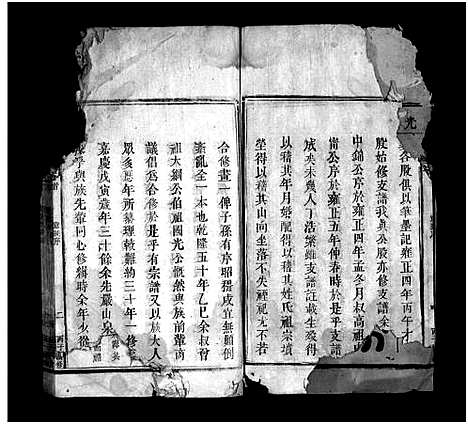 各股俱以筆墨記雍正四年丙午
股始修支譜我真公股亦修支譜余
中錦公序於雍正四年孟冬月叔高祖
公序於雍正五年仲春時於是乎支譜
成矣未幾人丁浩繁雖支譜註載生歿得
以稽其年月婚配得以稽其姓氏祖宗墳
塋得以稽其山向坐落不失經祀尤不若
合修畫一俾子孫有序昭穆咸宜無顛倒
紊亂全一本也乾隆五十年乙巳余叔曾
祖大綱公伯祖國光公慨然與族前輩商
議倡為合修於是乎有宗譜又以族大人
眾多歷年所纂理較難約三十年一修
嘉慶戊寅歲年三十餘余先嚴山泉
與族先輩同心修緝時余年少
光
二